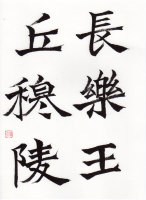 長樂王
丘穆陵